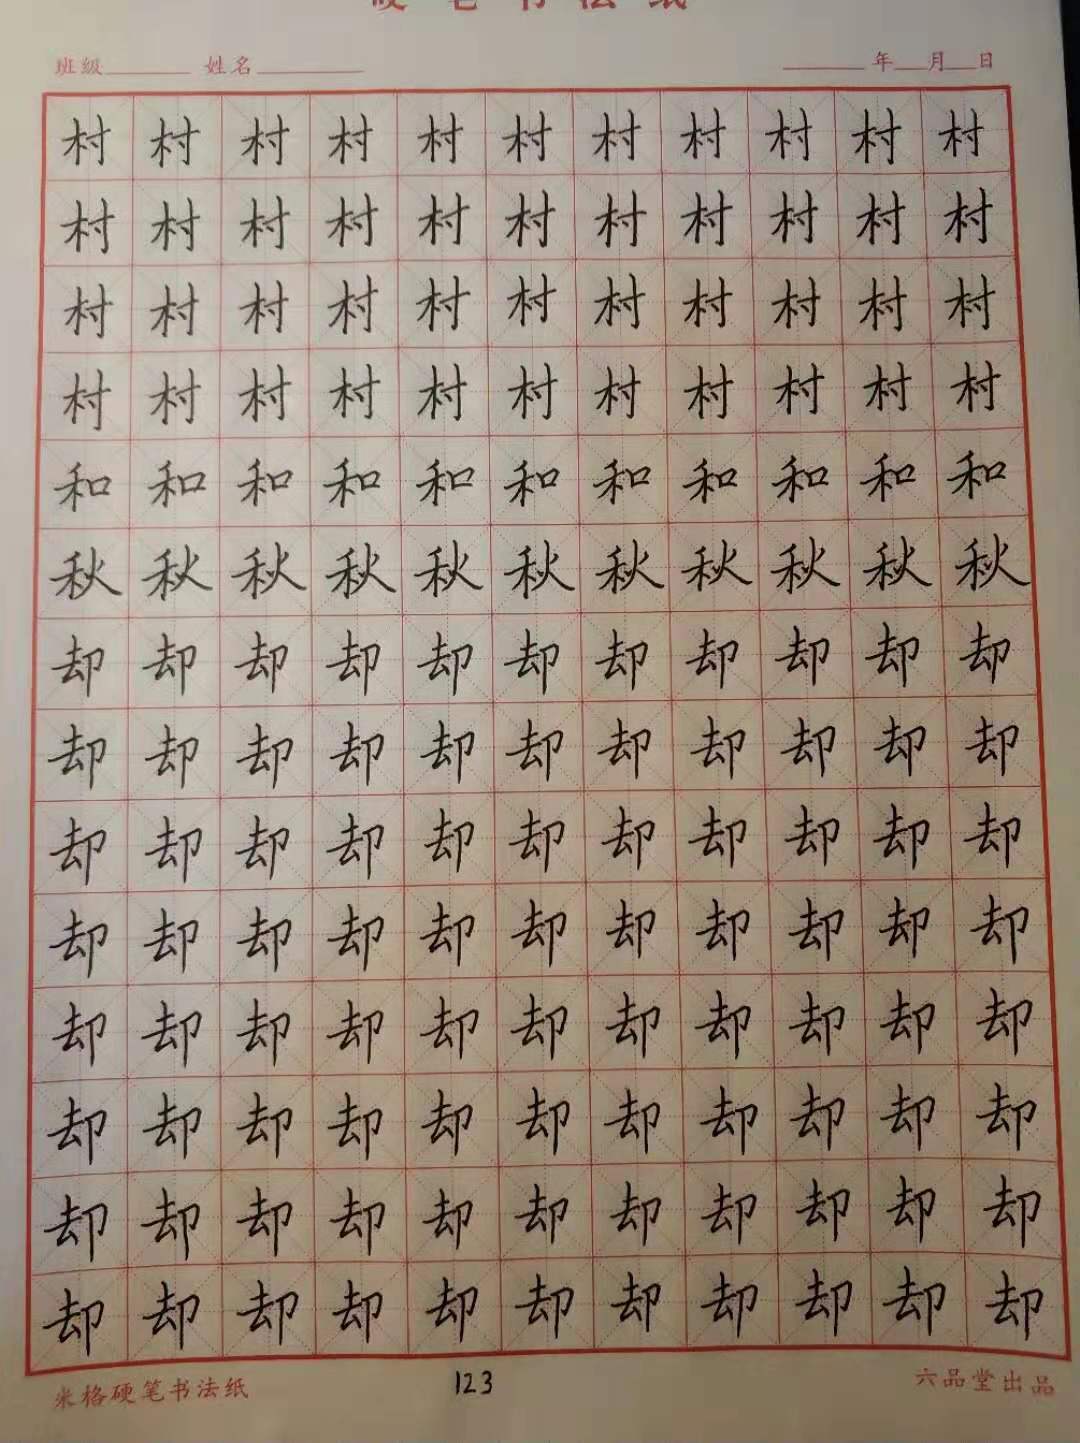 硬笔书法纸
班级 姓名 年 月 日
村村村村村村村村村村村
村村村村村村村村村村村
村村村村村村村村村村村
村村村村村村村村村村村
和和和和和和和和和和和
秋秋秋秋秋秋秋秋秋秋秋
却却却却却却却却却却却
却却却却却却却却却却却
却却却却却却却却却却却
却却却却却却却却却却却
却却却却却却却却却却却
却却却却却却却却却却却
却却却却却却却却却却却
却却却却却却却却却却却
米格硬�书法  123  六品�出品